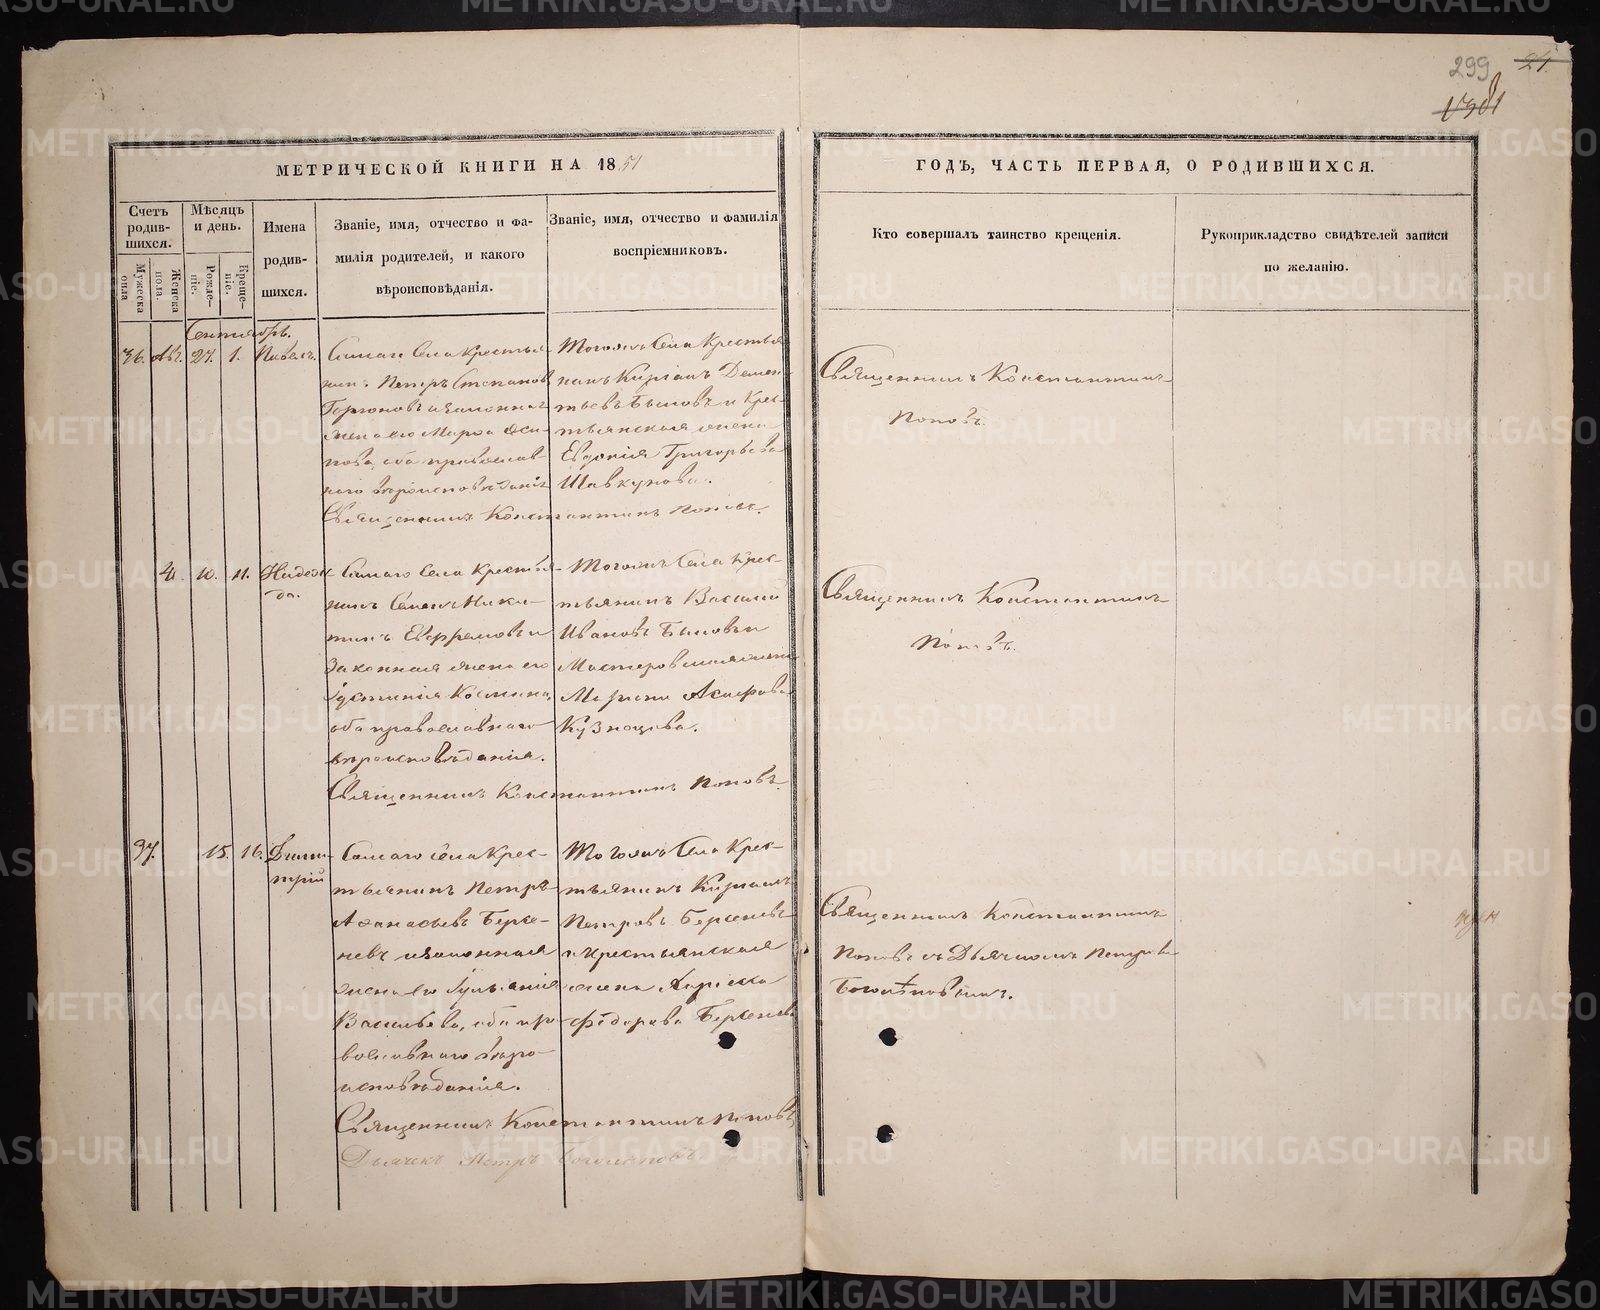 299 21.
МЕТРИЧЕСКОЙ КНИГИ НА 1851
ГОДЪ, ЧАСТЬ ПЕРВАЯ, О РОДИВШИХСЯ.
Счетъ родив-шихся.
Мужеска пола
Женска пола.
Мѣсяцъ и день.
Рожде-ніе.
Креще-ніе.
Имена
родив-
шихся.
Званіе, имя, отчество и фа-
милія родителей, и какого
вѣроисповѣданія.
Званіе, имя, отчество и фамилія
воспріемниковъ.
Кто совершалъ таинство крещенія.
Рукоприкладство свидѣтелей записи
по желанію.
Сентябрь.
36. Ав. 27. 1. Павелъ.
Самаго Села Крестья-
нинъ Петръ Степановъ
Горгоновъ и законная
жена его Марѳа Оси-
пова, оба православ
наго вѣроисповѣданія
Священникъ Константинъ Поповъ.
Тогожъ Села Крестья
нинъ Киріакъ Демен-
тьевъ Быковъ и Крес-
тьянская жена
Евдокія Григорьева
Шавкунова.
Священникъ Константинъ
Поповъ.
41. 10. 11. Надеж
да.
Самаго Села Крестья-
нинъ Семенъ Ники-
тинъ Евфремовъ и
Законная жена его
Іустинія Космина,
оба православнаго
вѣроисповѣданія.
Священникъ Константинъ Поповъ.
Тогожъ Села Крес-
тьянинъ Василій
Ивановъ Быковъ и
Мастеровская жена
Кузнецова.
Священникъ Константинъ
Поповъ.
37. 15. 16. Дими-
трій
Самаго Села Крес-
тьянинъ Петръ
Аѳанасьевъ Берсе-
невъ и законная
жена его Іуліанія
Васильева, оба пра
вославнаго вѣро-
исповѣданія.
Священникъ Константинъ Поповъ
Дьячекъ Петръ
Тогожъ Села Крес-
тьянинъ Киріакъ
Петровъ Берсеневъ
и крестьянская
жена
Ѳедорова Берсенева
Священникъ Константинъ
Поповъ съ Дьячкомъ Петромъ
METRIKI.GASO-URAL.RU